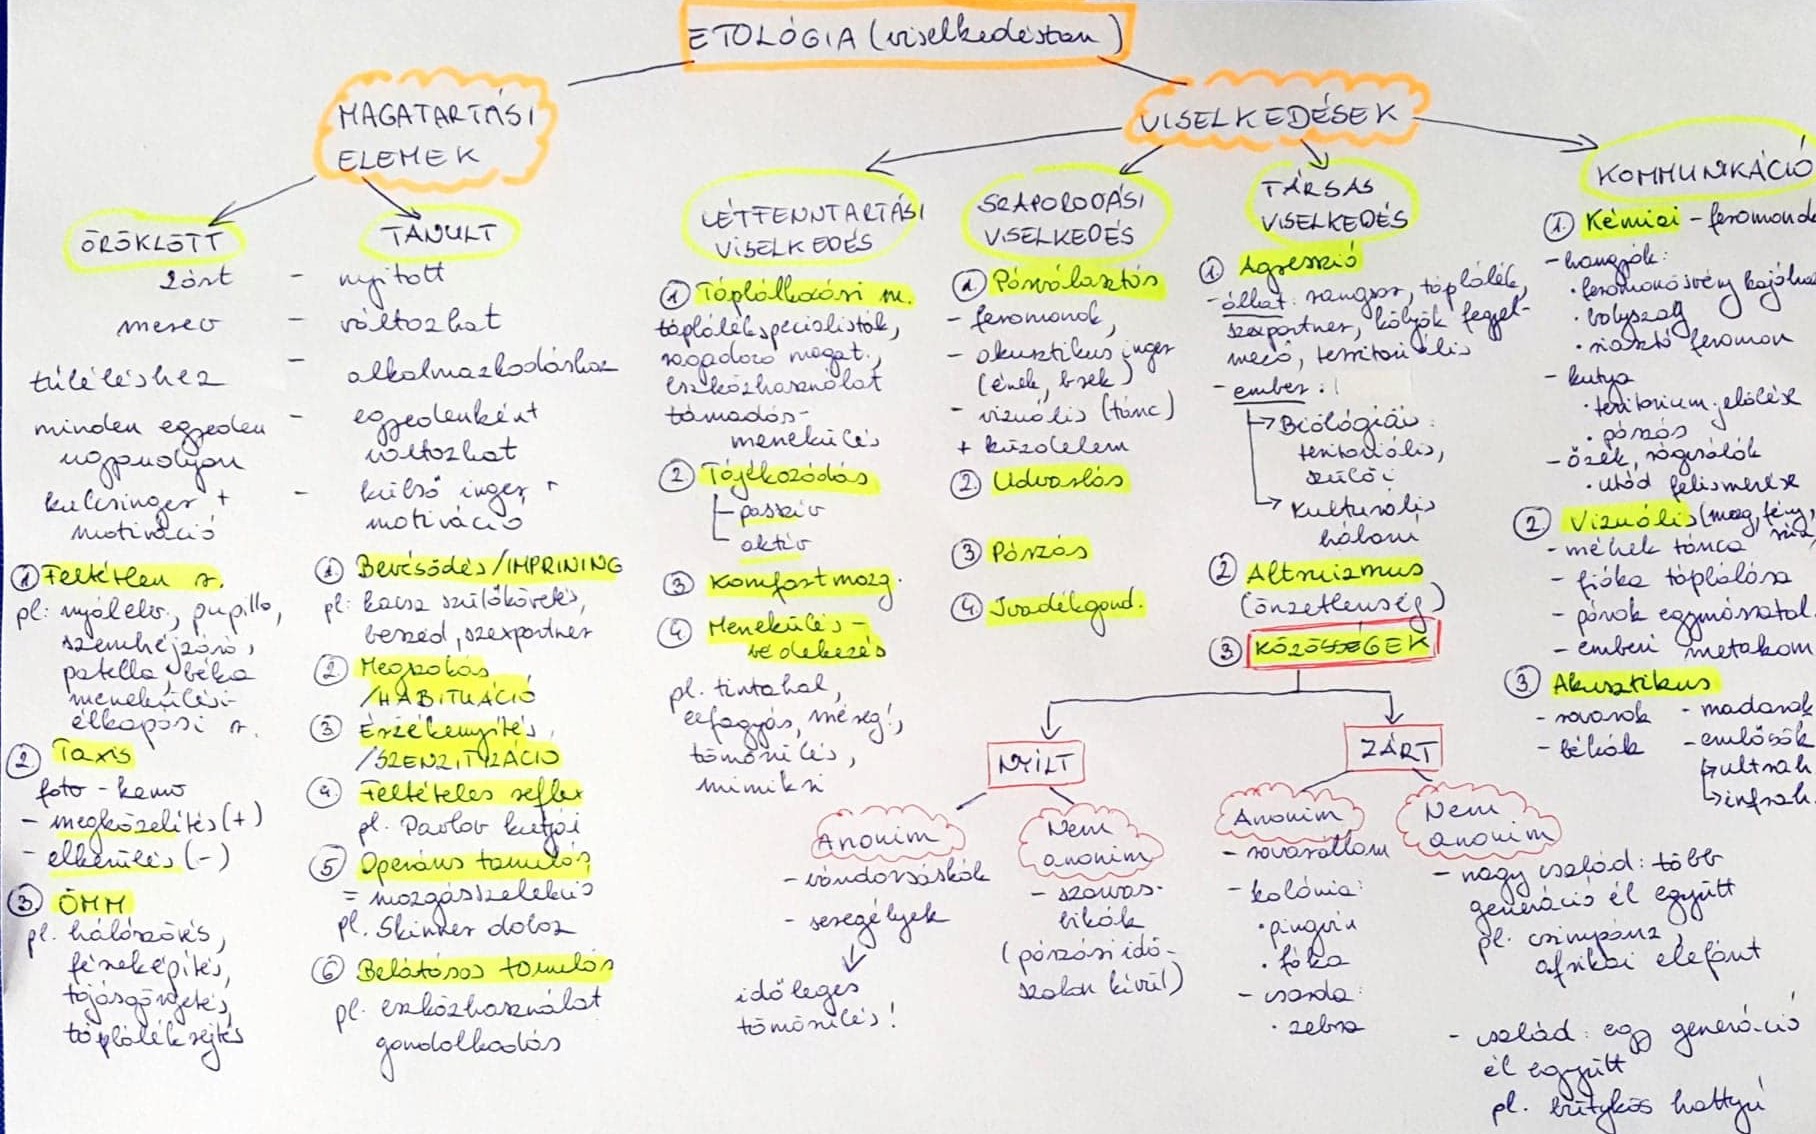 ETOLÓGIA (viselkedéstan)
MAGATARTÁSI
ELEMEK
ÖRÖKLÖTT
TANULT
zárt - nyitott
merev - változhat
túléléshez - alkalmazkodáshoz
minden egyeden - egyedenként
ugyanolyan változhat
kulcsinger + - külső inger +
motiváció motiváció
① Feltétlen r.
pl: nyálelv., pupilla,
szemhéjzáró,
patella, béka
menekülési-
elkapási r.
2. Taxis
foto - kemo
- megközelítés (+)
- elkerülés (-)
3. ÖMM
pl. hálószövés,
fészeképítés,
tojásgörgetés,
táplálék rejtés
① Bevésődés/IMPRINING
pl: kacsa szülőkövetés,
beszéd, szexpartner
② Megszokás
/HABITUÁCIÓ
③ Érzékenyítés
/SZENZITIZÁCIÓ
4. Feltételes reflex
pl. Pavlov kutyái
⑤ Operáns tanulás
= mozgásszelekció
pl. Skinner doboz
⑥ Belátásos tanulás
pl. eszközhasználat
gondolkodás
VISELKEDÉSEK
LÉTFENNTARTÁSI
VISELKEDÉS
① Táplálkozási m.
táplálékspecialisták,
ragadozó magat.,
eszközhasználat
támadás-
menekülés
② Tájékozódás
passzív
aktív
③ Komfortmozg.
④ Menekülés-
védekezés
pl. tintahal,
lefagyás, méreg!,
tömörülés,
mimikri
SZAPORODÁSI
VISELKEDÉS
1. Párválasztás
- feromonok,
- akusztikus inger
(ének, brek)
- vizuális (tánc)
+ küzdelem
2. Udvarlás
③ Párzás
④ Ivadékgond.
TÁRSAS
VISELKEDÉS
1. Agresszió
- állat: rangsor, táplálék,
szexpartner, kölyök fegyel-
mező, territoriális
- ember:
Biológiai:
territoriális,
szülői
Kulturális
háború
② Altruizmus
(önzetlenség)
③ KÖZÖSSÉGEK
NYÍLT
ZÁRT
Anonim
- vándorsáskák
- seregélyek
időleges
tömörülés!
Nem
anonim
- szarvas-
bikák
(párzási idő-
szakon kívül)
Anonim
- rovarállam
- kolónia:
• pingvin
• fóka
- csorda:
• zebra
Nem
anonim
- nagy család: több
generáció él együtt
pl. csimpánz,
afrikai elefánt
- család: egy generáció
él együtt
pl. bütykös hattyú
KOMMUNIKÁCIÓ
1. Kémiai - feromonok
- hangyák:
• feromonösvény
• bolyszag
• riasztó feromon
- kutya
• territorium jelölése
• párzás
- őzek, rágcsálók
• utód felismerése
② Vizuális (mozg, fény,
- méhek tánca
- fióka táplálása
- párok egymással
- emberi metakom
③ Akusztikus
- rovarok - madarak
- békák - emlősök
ultrah.
infrah.